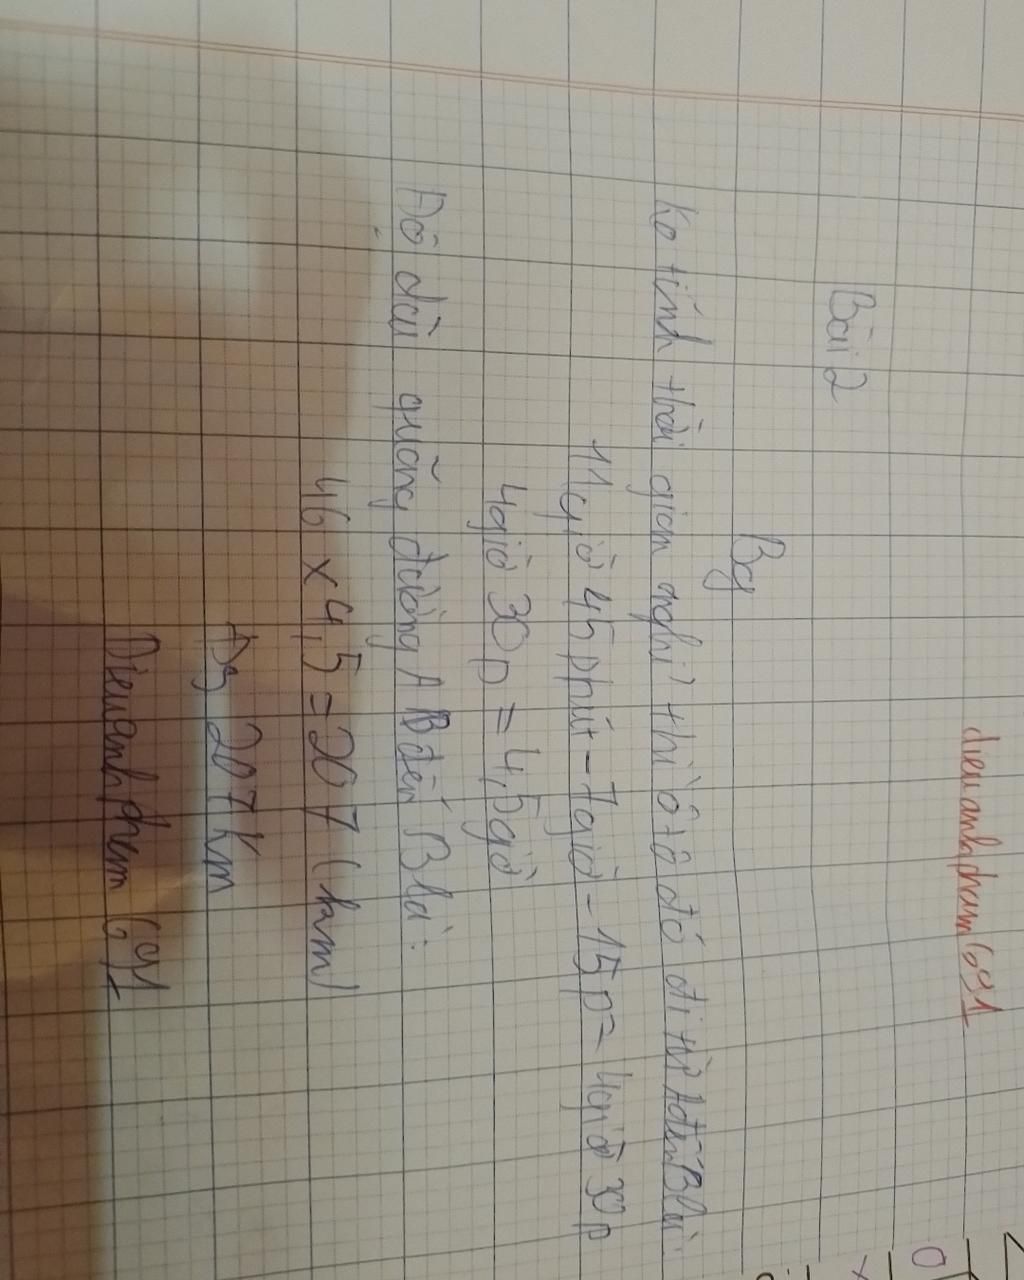 dieuanhpham691
Bài 2
Bg
Ko tính thời gian nghỉ thì ô tô đó đi từ A đến B là
11giờ 45 phút - 7giờ - 15p = 4giờ 30p
4giờ 30p = 4,5giờ
Độ dài quãng đường AB đến B là:
46 x 4,5 = 207 (km)
Đs 207km
Dieuanhpham691